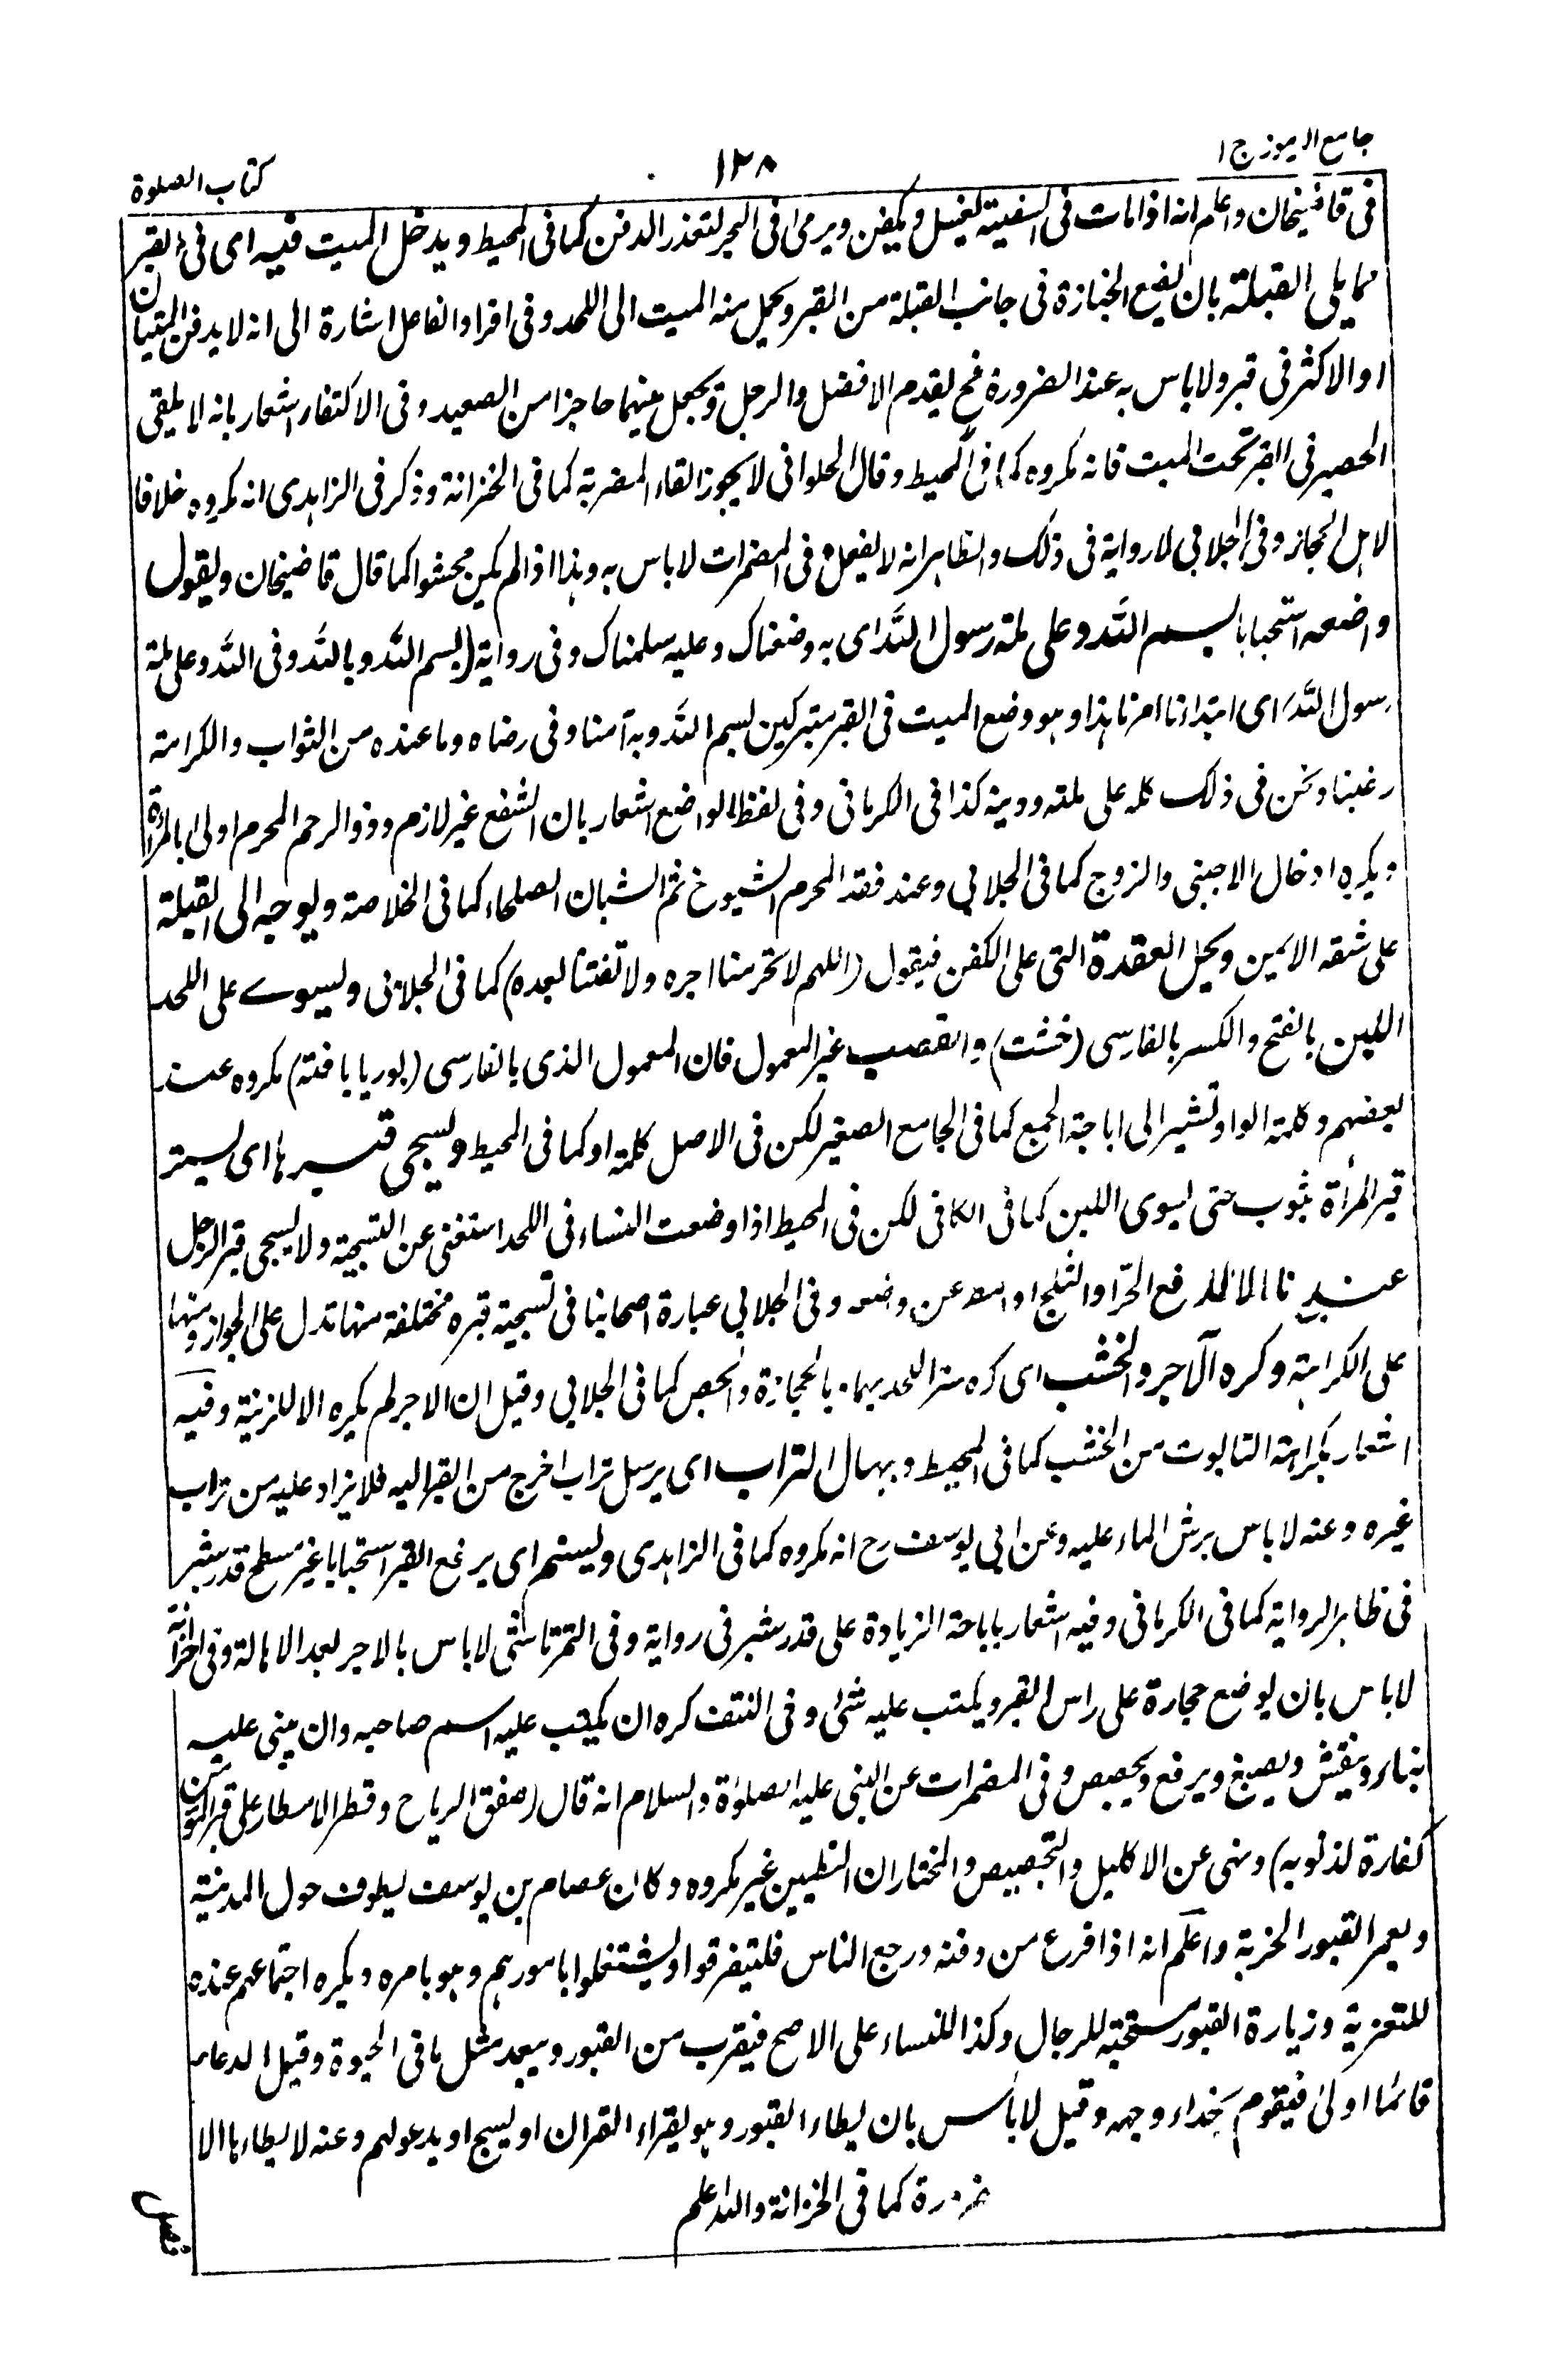 جامع الرموز ج ١
١٢٨
كتاب الصلوة
فى قاضيخان واعلم انه اذا مات فى السفينة يغسل ويكفن ويرمى فى البحر لتعذر الدفن كما فى المحيط ويدخل الميت فيه اى فى القبر
مما يلى القبلة بان يضع الجنازة فى جانب القبلة من القبر ويحمل منه الميت الى اللحد وفى افراد الفاعل اشارة الى انه لا يدفن الميتان
او الاكثر فى قبر ولا باس به عند الضرورة فح يقدم الافضل والرجل ويجعل بينهما حاجزا من الصعيد وفى الاكتفاء اشعار بانه لا يلقى
الحصير فى القبر تحت الميت فانه مكروه كما فى المحيط وقال الحلوانى لا يجوز القاء المضربة كما فى الخزانة وذكر فى الزاهدى انه مكروه خلافا
لاهل الحجاز وفى الجلابى لا رواية فى ذلك والظاهر انه لا يفعل وفى المضمرات لا باس به وهذا اذا لم يكن محشوا كما قال قاضيخان ويقول
واضعه استحبابا بسم الله وعلى ملة رسول الله اى به وضعناك وعليه سلمناك وفى رواية (بسم الله وبالله وفى الله وعلى ملة
رسول الله) اى ابتدائنا امرنا هذا وهو وضع الميت فى القبر متبركين بسم الله وبه آمنا وفى رضاه وما عنده من الثواب والكرامة
رغبنا ونحن فى ذلك كله على ملته ودينه كذا فى الكرمانى وفى لفظ الواضع اشعار بان الشفع غير لازم وذو الرحم المحرم اولى بالمرأة
ويكره ادخال الاجنبى والزوج كما فى الجلابى وعند فقد المحرم الشيوخ ثم الشبان الصلحاء كما فى الخلاصة ويوجه الى القبلة
على شقه الايمن ويحل العقدة التى على الكفن فيقول (اللهم لا تحرمنا اجره ولا تفتنا بعده) كما فى الجلابى ويسوى على اللحد
اللبن بالفتح والكسر بالفارسى (خشت) والقصب غير المعمول فان المعمول الذى بالفارسى (بوريا بافته) مكروه عند
بعضهم وكلمة الواو تشير الى اباحة الجمع كما فى الجامع الصغير لكن فى الاصل كلمة او كما فى المحيط ويسجى قبرها اى يستر
قبر المرأة بثوب حتى يسوى اللبن كما فى الكافى لكن فى المحيط اذا وضعت النساء فى اللحد استغنى عن التسجية ولا يسجى قبر الرجل
عندنا الا لدفع الحر او الثلج او وفى الجلابى عبارة اصحابنا فى تسجية قبره مختلفة منها تدل على الجواز ومنها
على الكراهة وكره الآجر والخشب اى كره ستر اللحد بهما بالحجارة والجص كما فى الجلابى وقيل ان الاجر لم يكره الا للزينة وفيه
اشعار بكراهة التابوت من الخشب كما فى المحيط ويهال التراب اى يرسل تراب اخرج من القبر اليه فلا يزاد عليه من تراب
غيره وعنه لا باس برش الماء عليه وعن ابى يوسف رح انه مكروه كما فى الزاهدى ويسنم اى يرفع القبر استحبابا غير مسطح قدر شبر
فى ظاهر الرواية كما فى الكرمانى وفيه اشعار باباحة الزيادة على قدر شبر فى رواية وفى التمرتاشى لا باس بالاجر بعد الاهالة وفى الخزانة
لا باس بان يوضع حجارة على راس القبر ويكتب عليه شئ وفى النتف كره ان يكتب عليه اسم صاحبه وان يبنى عليه
بناء وينقش ويصبغ ويرفع ويجصص وفى المضمرات عن النبى عليه الصلوٰة والسلام انه قال (صفق الرياح وقطر الامطار على قبر المؤمن
كفارة لذنوبه) ونهى عن الاكليل والتجصيص والمختار ان التطيين غير مكروه وكان عصام بن يوسف يطوف حول المدينة
ويعمر القبور الخربة واعلم انه اذا فرغ من دفنه ورجع الناس فليتفرقوا وليشتغلوا بامورهم وهو بامره ويكره اجتماعهم عنده
للتعزية وزيارة القبور مستحبة للرجال وكذا للنساء على الاصح فيقرب من القبور ويبعد مثل ما فى الحيوة وقيل الدعاء
قائما اولى فيقوم بحذاء وجهه وقيل لا بأس بان يطاء القبور وهو يقراء القران او يسبح او يدعو لهم وعنه لا يطاءها الا
ضرورة كما فى الخزانة والله اعلم
فصل